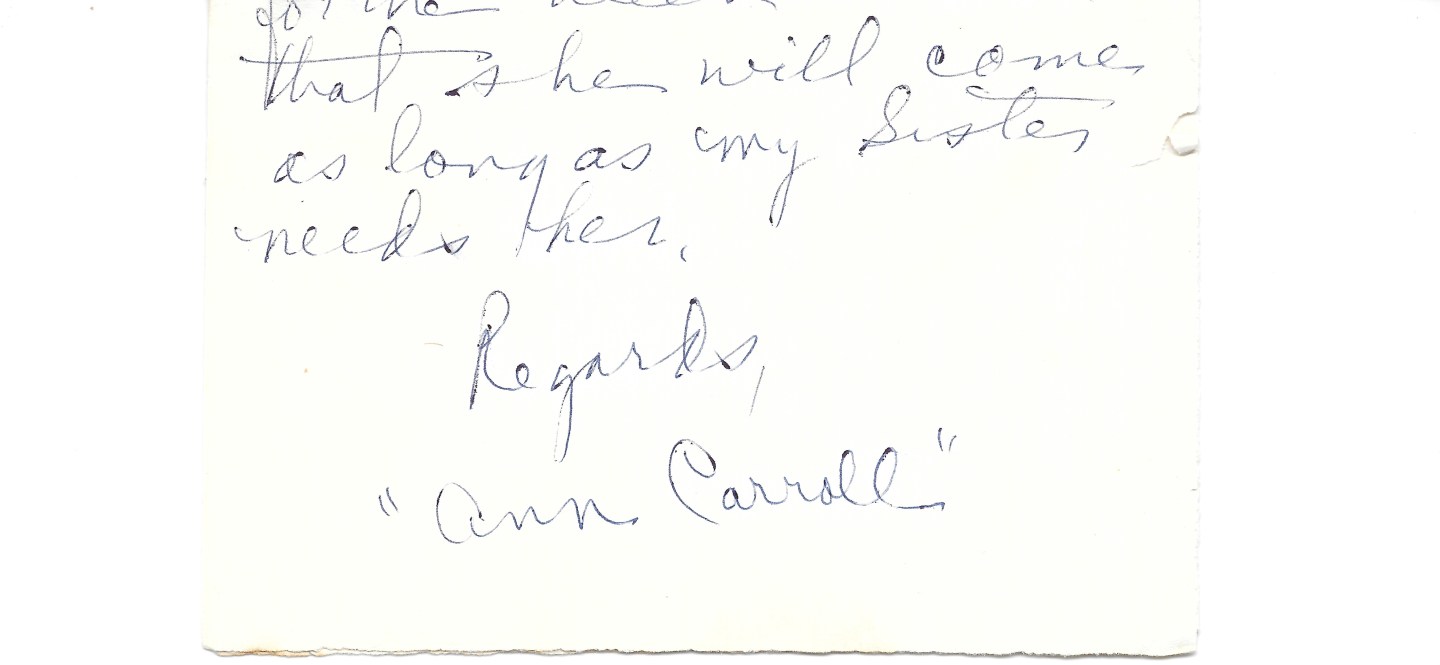 that she will come
as long as my Sister
needs her.
Regards,
"Ann Carroll"